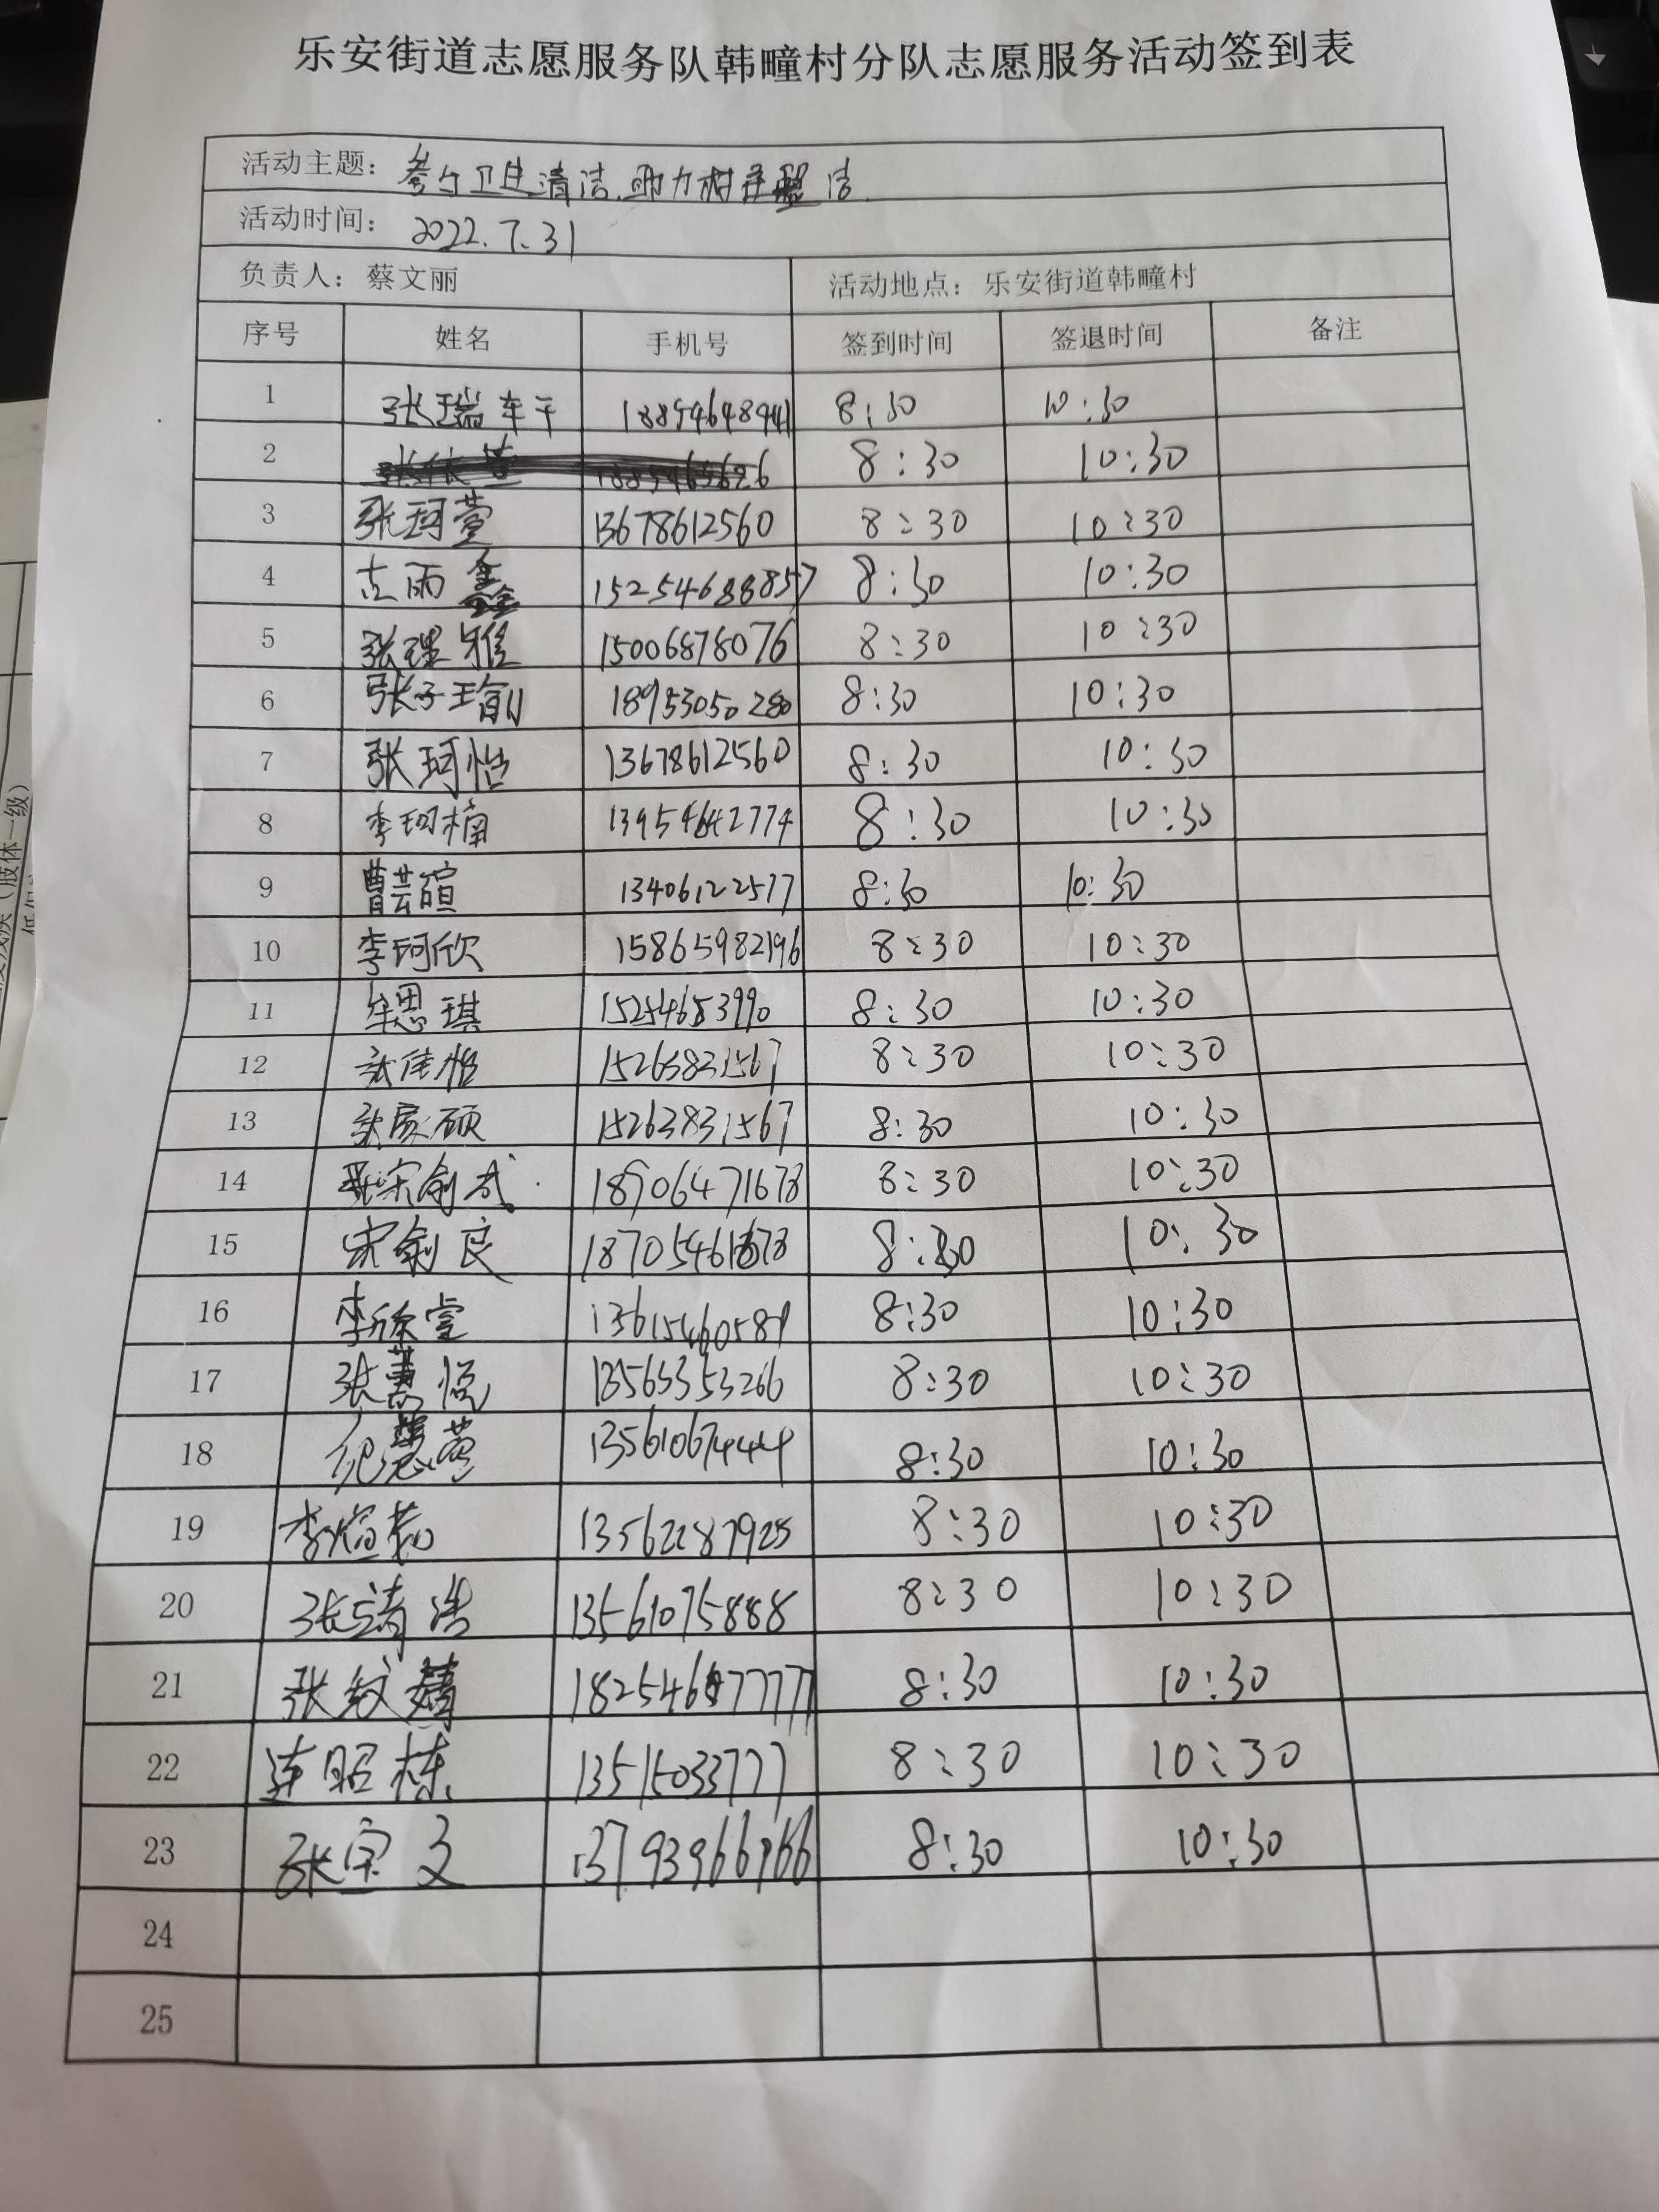 乐安街道志愿服务队韩疃村分队志愿服务活动签到表
活动主题：参与卫生清洁.助力村庄整洁.
活动时间：2022.7.31
负责人：蔡文丽 活动地点：乐安街道韩疃村
序号 姓名 手机号 签到时间 签退时间 备注
1 张瑞轩 18854648941 8:30 10:30
2 8:30 10:30
3 张珂萱 13678612560 8:30 10:30
4 雨鑫 15254688857 8:30 10:30
5 张瑾雅 15006878076 8:30 10:30
6 张子瑜 18953050280 8:30 10:30
7 张珂怡 13678612560 8:30 10:30
8 李珂楠 13954642774 8:30 10:30
9 曹芸暄 13406122577 8:30 10:30
10 李珂欣 15865982196 8:30 10:30
11 牟思琪 15254683990 8:30 10:30
12 张佳怡 15263831567 8:30 10:30
13 张家硕 15263831567 8:30 10:30
14 宋俞成 18906471678 8:30 10:30
15 宋俞良 18705461678 8:30 10:30
16 李欣萱 13615460581 8:30 10:30
17 张 悦 13563353266 8:30 10:30
18 纪慧萱 13561067444 8:30 10:30
19 李煊 13562287925 8:30 10:30
20 张靖浩 13561075888 8:30 10:30
21 张纹 18254677777 8:30 10:30
22 连昭栋 13515033777 8:30 10:30
23 张宇文 13793966966 8:30 10:30
24
25